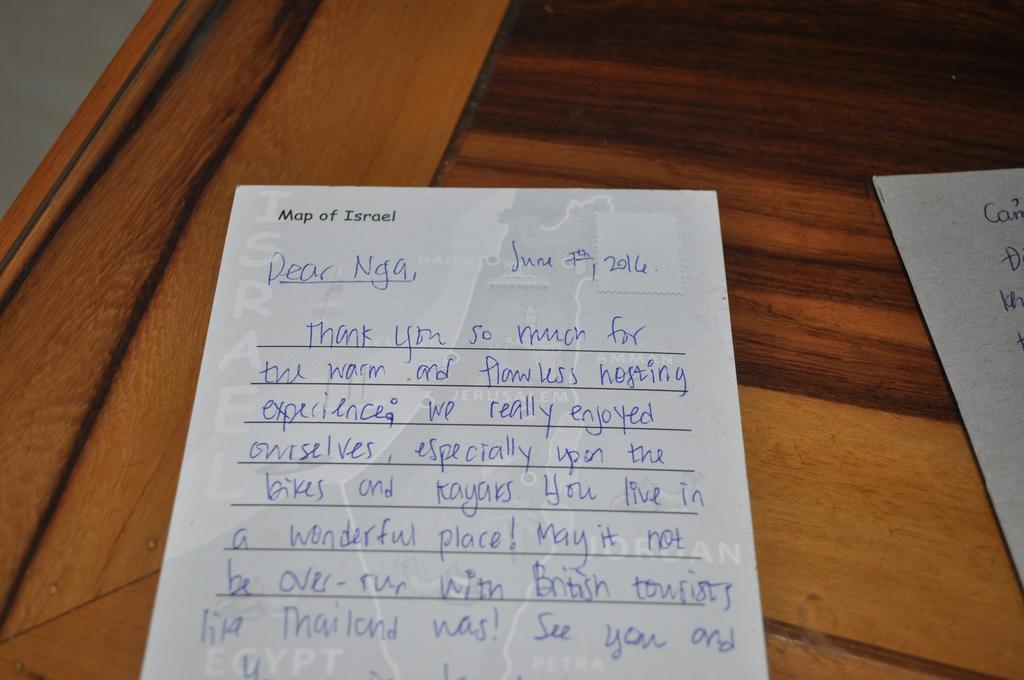 Map of Israel
Dear Nga,
June 7th, 2016.
Thank you so much for
the warm and flawless hosting
experience; we really enjoyed
ourselves, especially upon the
bikes and kayaks. You live in
a wonderful place! May it not
be over-run with British tourists
like Thailand was! See you and
ISRAEL
HAIFA
AMMAN
JERUSALEM
JORDAN
EGYPT
PETRA
Cảm